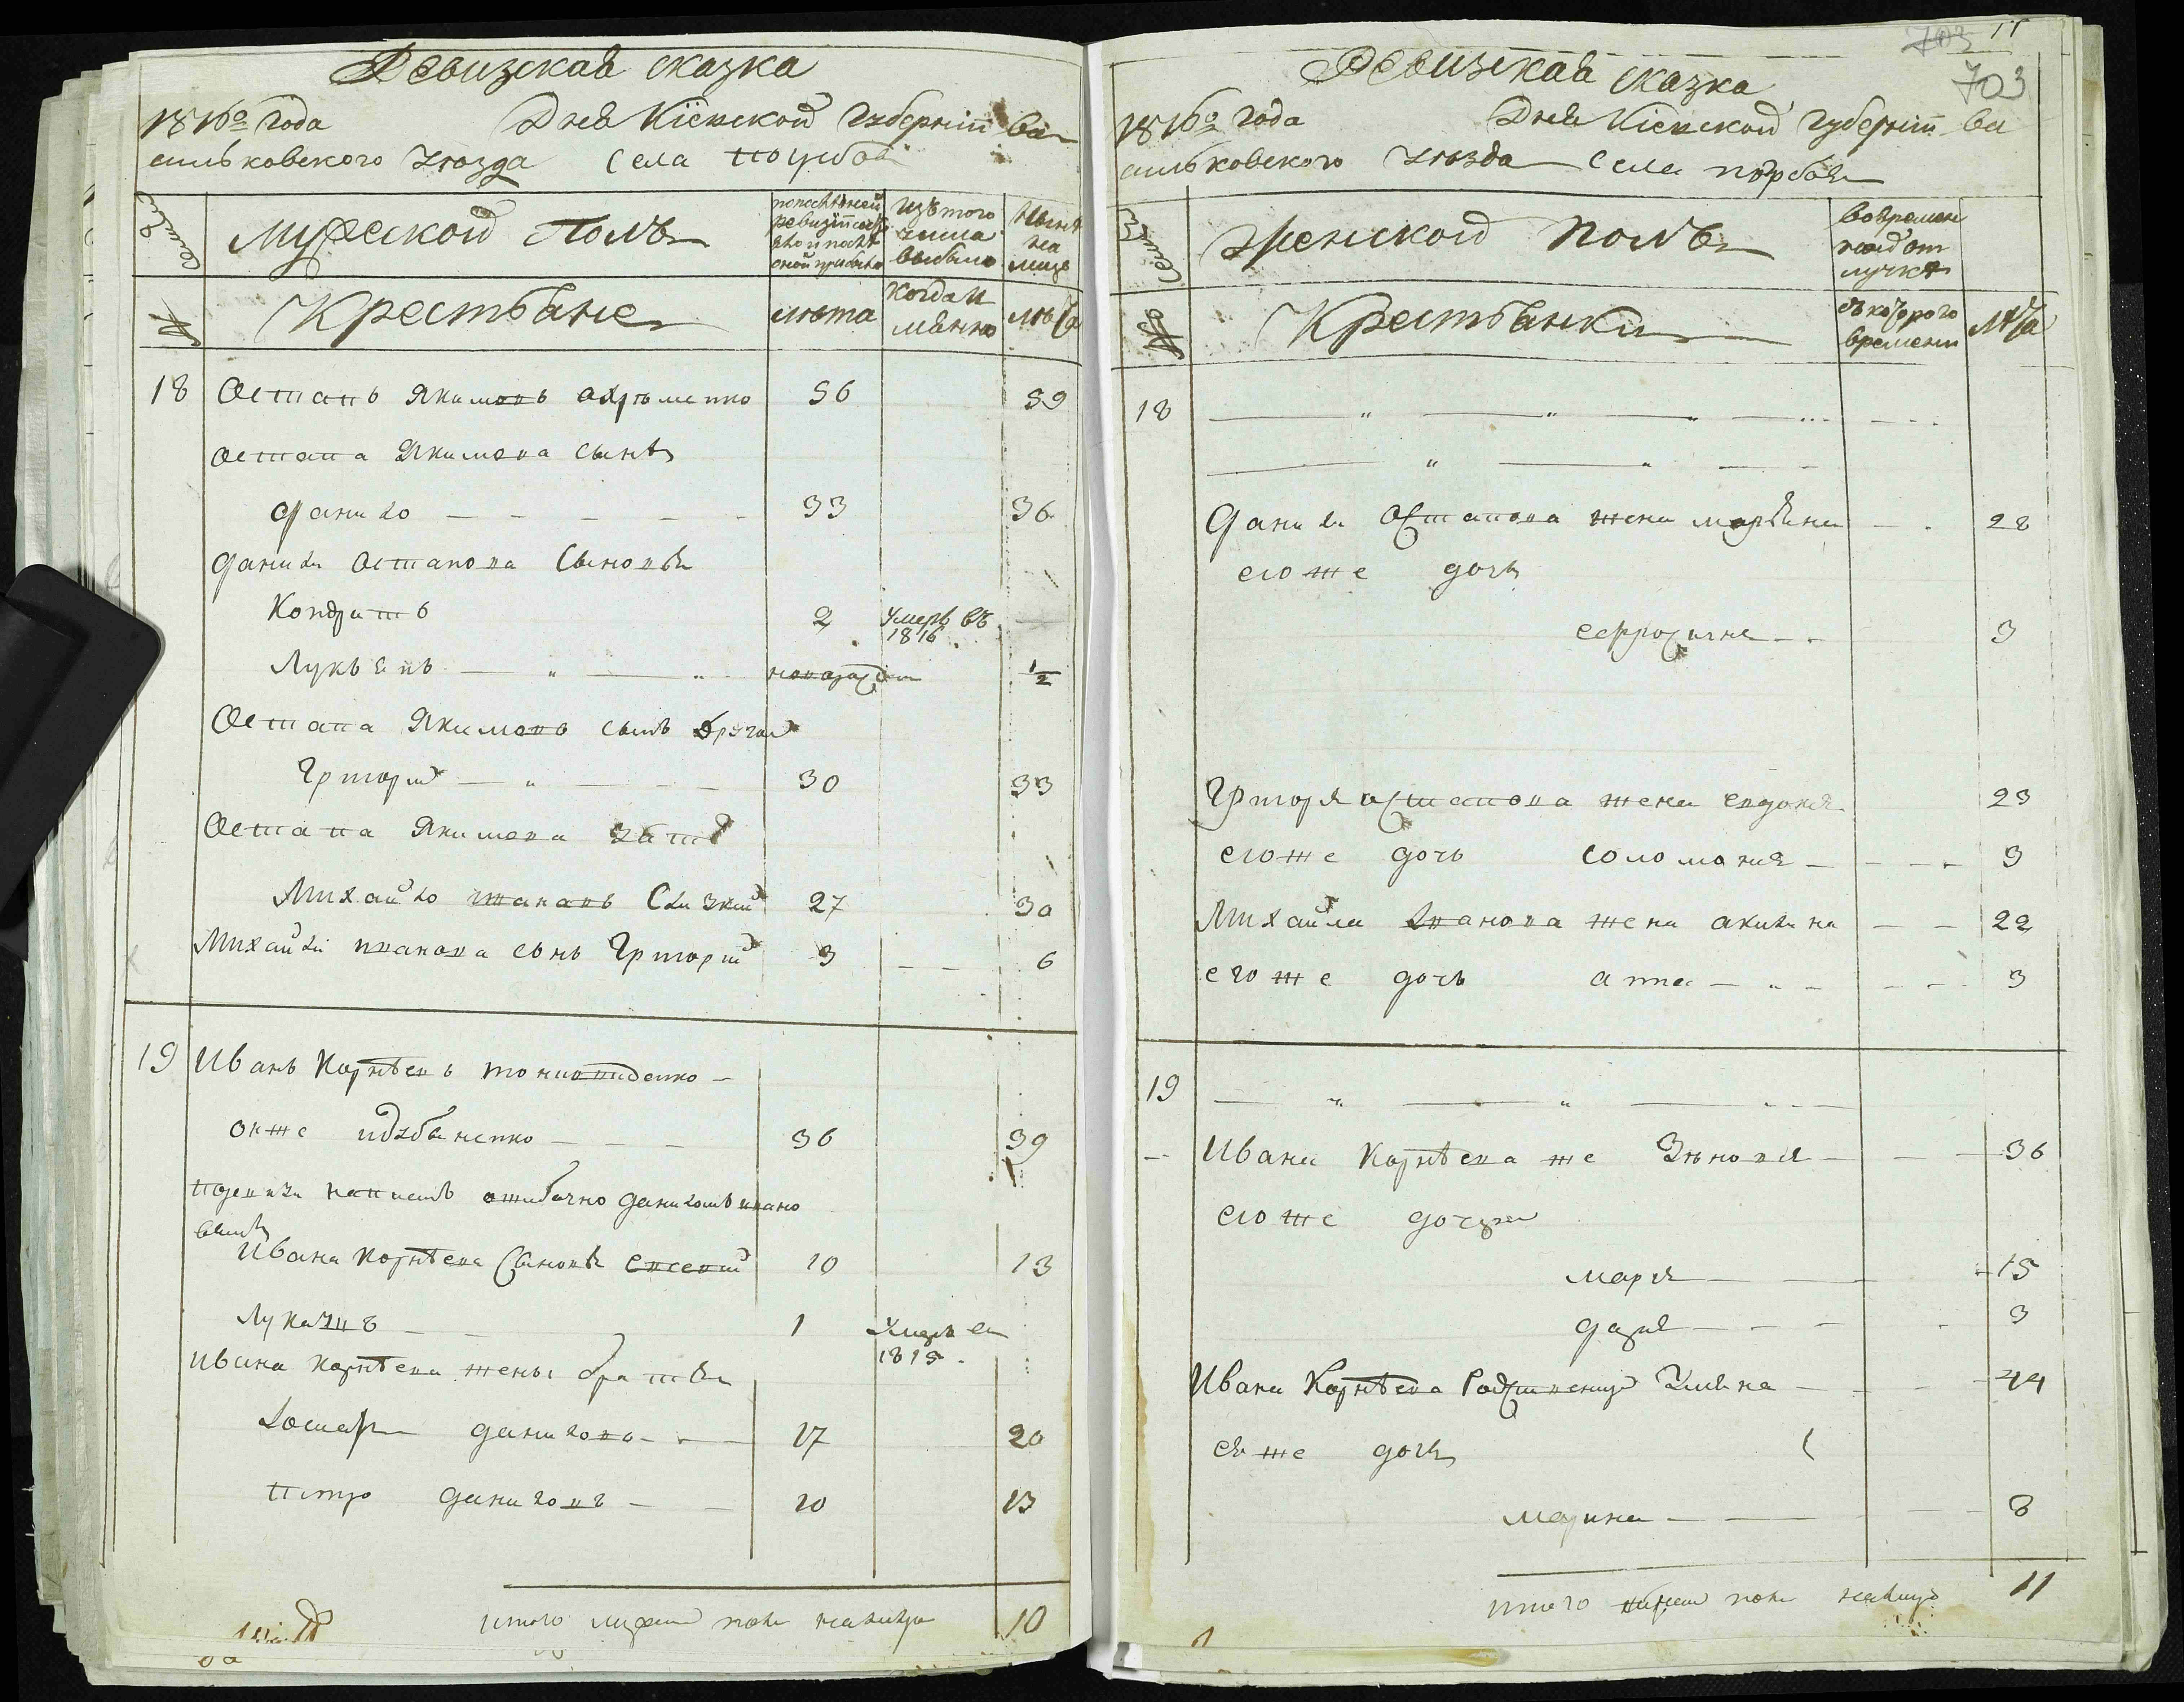 Ревизская сказка
1816го года Дня Кіевской Губерніи Ва
сильковского уюзда Села
Семьи
Мужеской Полъ
по последней ревизіи состо
яло и после оной прибыло
Изъ того числа выбыло
Ныне на лицо
№
Крестьяне
лета
когда именно
лета
18 Остапъ Якимовъ 56 59
Остапа Якимова сынъ
Данило 33 36
Данила Остапова Сыновья
Кондратъ 2 умеръ въ 1816
Лукьянъ новорожден ½
Остапа Якимовъ сынъ другой
Григорій 30 33
Остапа Якимова зять
Михайло Ивановъ Слизкій 27 30
Михайла Иванова сынъ Григорій 3 6
19 Иванъ Корнѣевъ
онже 36 39
написанъ ошибочно Даниломъ Ивано
вымъ
Ивана Корнѣева Сыновья Евсевій 10 13
Лукаянъ 1 Умеръ въ 1815
Ивана Корнѣева жены братья
Данилова 17 20
Петро Даниловъ 10 13
итого мужеска пола налицо 10
11
703
703
Ревизская сказка
1816го года Дня Кіевской Губерніи Ва
сильковского уюзда Села
Семьи
Женской Полъ
Во временной отлучке
№
Крестьянки
съ которого времени
лета
18
Данила Остапова жена Марьяна 28
егоже дочь
Ефросина 3
Григоря Остапова жена Евдокия 23
егоже дочь Соломания 3
Михайла Иванова жена Акилина 22
егоже дочь Анна 3
19
Ивана Корнѣева же Зѣновия 36
егоже дочери
Мария 15
Дария 3
Ивана Корнѣева Родственица Ульяна 44
ея же дочь
Марина 8
итого женска пола налицо 11